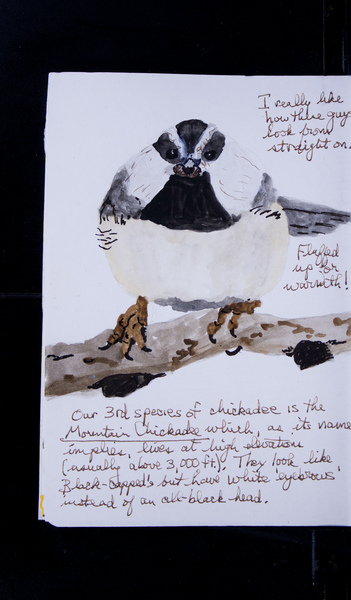 I really like
how these guys
look from
straight on.
Fluffed
up for
warmth!
Our 3rd species of chickadee is the
Mountain Chickadee which, as its name
implies, lives at high elevations
(usually above 3,000 ft.). They look like
Black-capped's but have white eyebrows
instead of an all-black head.